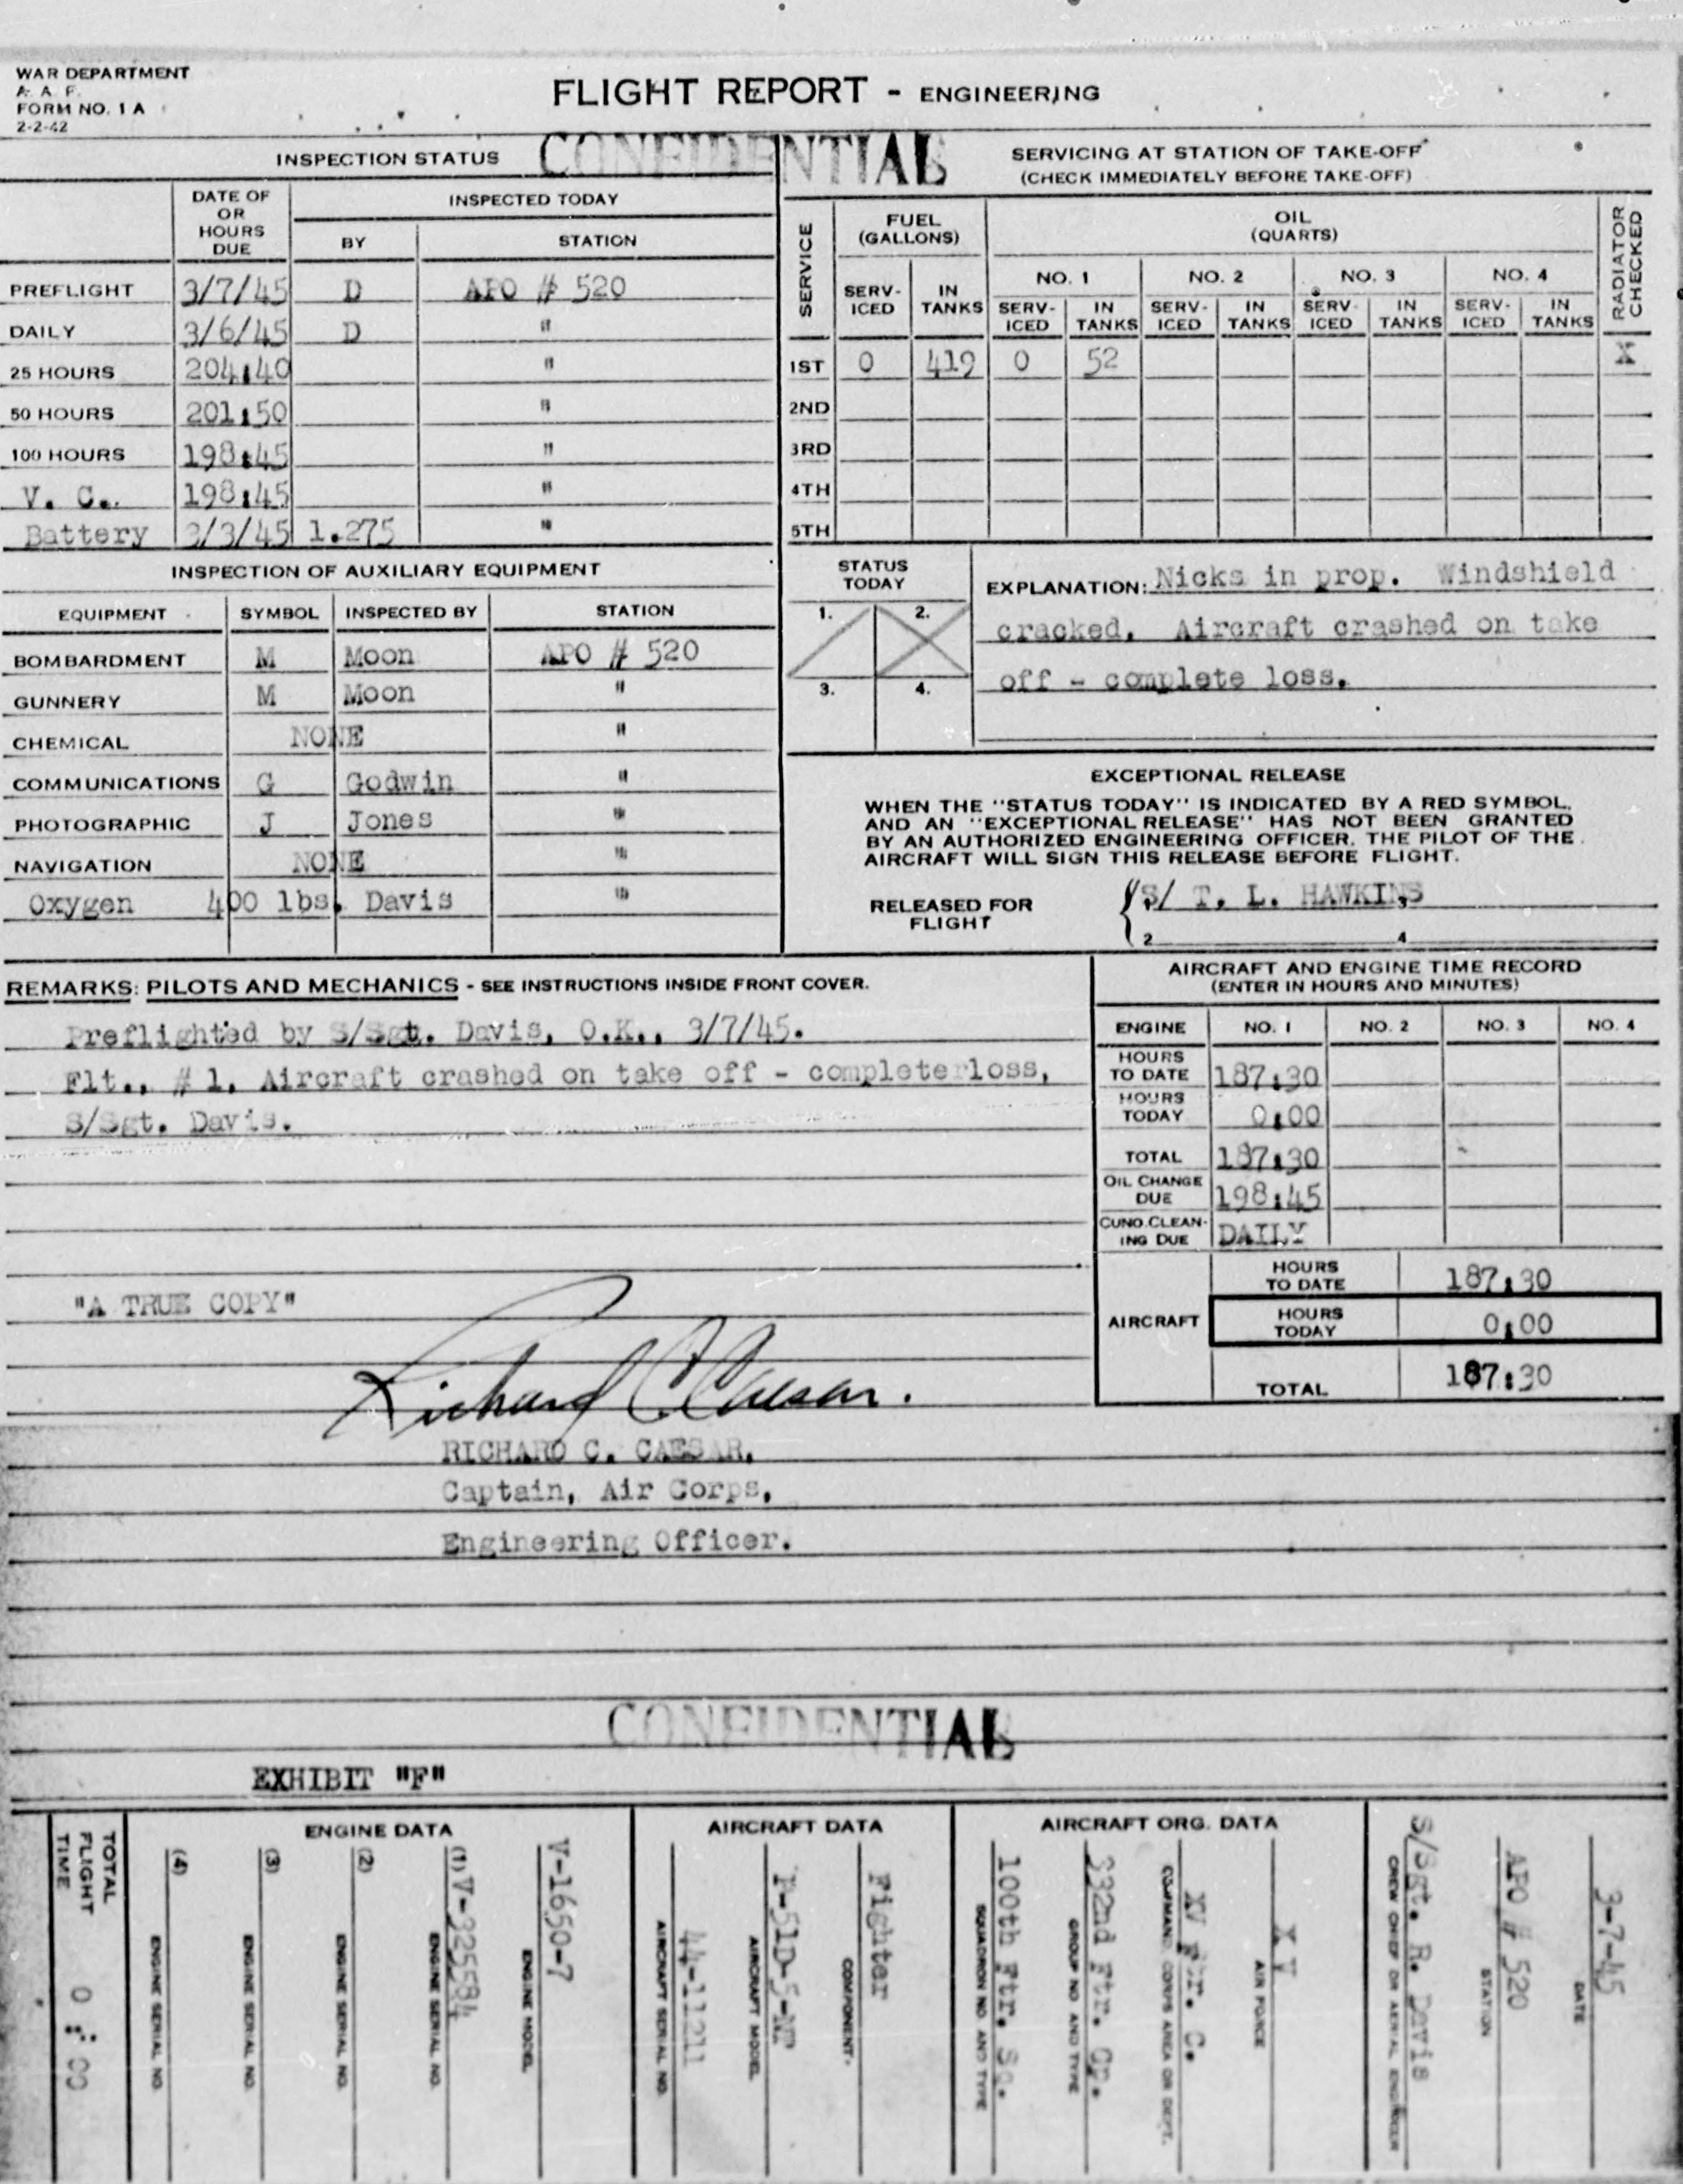 WAR DEPARTMENT
A. A. F.
FORM NO. 1 A
2-2-42
FLIGHT REPORT - ENGINEERING
CONFIDENTIAL
INSPECTION STATUS
DATE OF OR HOURS DUE
INSPECTED TODAY
BY STATION
PREFLIGHT 3/7/45 D APO # 520
DAILY 3/6/45 D "
25 HOURS 204:40 "
50 HOURS 201:50 "
100 HOURS 198:45 "
V. C. 198:45 "
Battery 3/3/45 1.275 "
SERVICING AT STATION OF TAKE-OFF
(CHECK IMMEDIATELY BEFORE TAKE-OFF)
SERVICE
FUEL (GALLONS)
OIL (QUARTS)
RADIATOR CHECKED
NO. 1 NO. 2 NO. 3 NO. 4
SERV-ICED IN TANKS SERV-ICED IN TANKS SERV-ICED IN TANKS SERV-ICED IN TANKS SERV-ICED IN TANKS
1ST 0 419 0 52 X
2ND
3RD
4TH
5TH
INSPECTION OF AUXILIARY EQUIPMENT
EQUIPMENT SYMBOL INSPECTED BY STATION
BOMBARDMENT M Moon APO # 520
GUNNERY M Moon "
CHEMICAL NONE "
COMMUNICATIONS G Godwin "
PHOTOGRAPHIC J Jones "
NAVIGATION NONE "
Oxygen 400 lbs. Davis "
STATUS TODAY
1. 2.
3. 4.
EXPLANATION: Nicks in prop. Windshield
cracked. Aircraft crashed on take
off - complete loss.
EXCEPTIONAL RELEASE
WHEN THE "STATUS TODAY" IS INDICATED BY A RED SYMBOL,
AND AN "EXCEPTIONAL RELEASE" HAS NOT BEEN GRANTED
BY AN AUTHORIZED ENGINEERING OFFICER. THE PILOT OF THE
AIRCRAFT WILL SIGN THIS RELEASE BEFORE FLIGHT.
RELEASED FOR FLIGHT
S/ T. L. HAWKINS
2 4
REMARKS: PILOTS AND MECHANICS - SEE INSTRUCTIONS INSIDE FRONT COVER.
Preflighted by S/Sgt. Davis, O.K., 3/7/45.
Flt., # 1. Aircraft crashed on take off - complete loss,
S/Sgt. Davis.
AIRCRAFT AND ENGINE TIME RECORD
(ENTER IN HOURS AND MINUTES)
ENGINE NO. 1 NO. 2 NO. 3 NO. 4
HOURS TO DATE 187:30
HOURS TODAY 0:00
TOTAL 187:30
OIL CHANGE DUE 198:45
CUNO CLEAN-ING DUE DAILY
AIRCRAFT
HOURS TO DATE 187:30
HOURS TODAY 0:00
TOTAL 187:30
"A TRUE COPY"
Richard C Caesar.
RICHARD C. CAESAR,
Captain, Air Corps,
Engineering Officer.
CONFIDENTIAL
EXHIBIT "F"
3-7-45
DATE
APO # 520
STATION
S/Sgt. R. Davis
CREW CHIEF OR AERIAL ENGINEER
AIRCRAFT ORG. DATA
X V
AIR FORCE
XV Ftr. C.
COMMAND, CORPS AREA OR DEPT.
332nd Ftr. Gp.
GROUP NO. AND TYPE
100th Ftr. Sq.
SQUADRON NO. AND TYPE
AIRCRAFT DATA
Fighter
COMPONENT.
P-51D-5-NT
AIRCRAFT MODEL
44-11211
AIRCRAFT SERIAL NO.
ENGINE DATA
V-1650-7
ENGINE MODEL
(1) V-325584
ENGINE SERIAL NO.
(2)
ENGINE SERIAL NO.
(3)
ENGINE SERIAL NO.
(4)
ENGINE SERIAL NO.
TOTAL FLIGHT TIME 0:00